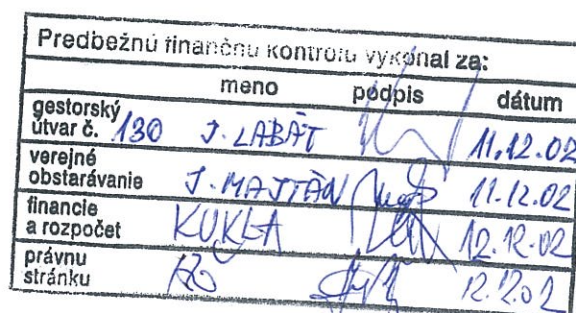 Predbežnú finančnú kontrolu vykonal za:
meno podpis dátum
gestorský
útvar č. 130 J. LABÁT 11.12.02
verejné
obstarávanie J. MAJTÁN 11.12.02
financie
a rozpočet KUKLA 12.12.02
právnu
stránku 12.12.02